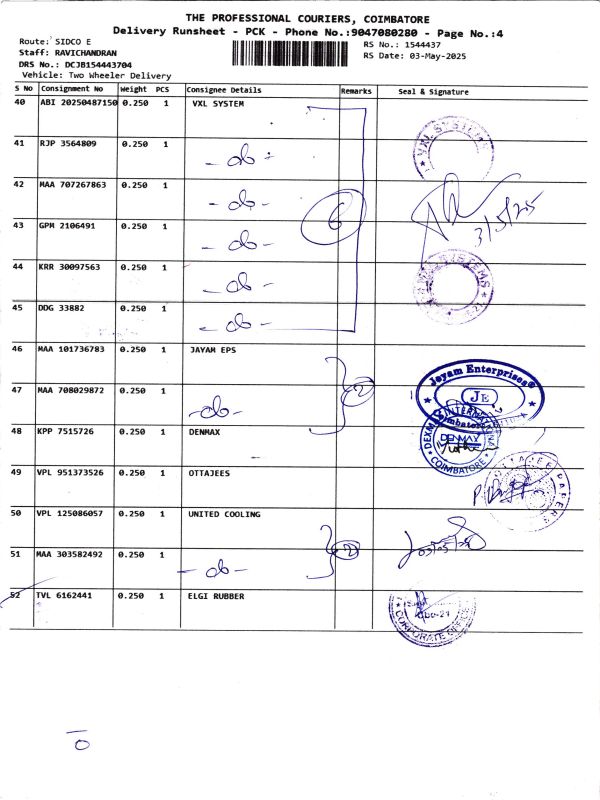 THE PROFESSIONAL COURIERS, COIMBATORE
Delivery Runsheet - PCK - Phone No.:9047080280 - Page No.:4
Route: SIDCO E
Staff: RAVICHANDRAN
DRS No.: DCJB154443704
Vehicle: Two Wheeler Delivery
RS No.: 1544437
RS Date: 03-May-2025
S No Consignment No Weight PCS Consignee Details Remarks Seal & Signature
40 ABI 20250487150 0.250 1 VXL SYSTEM
41 RJP 3564809 0.250 1 - do -
42 MAA 707267863 0.250 1 - do - 6
3/5/25
43 GPM 2106491 0.250 1 - do -
44 KRR 30097563 0.250 1 - do -
45 DDG 33882 0.250 1 - do -
46 MAA 101736783 0.250 1 JAYAM EPS
Jayam Enterprises
JE
Coimbatore
47 MAA 708029872 0.250 1 - do - 2
48 KPP 7515726 0.250 1 DENMAX
DENMAX
COIMBATORE
49 VPL 951373526 0.250 1 OTTAJEES
50 VPL 125086057 0.250 1 UNITED COOLING
51 MAA 303582492 0.250 1 - do - 2
52 TVL 6162441 0.250 1 ELGI RUBBER
CORPORATE OFFICE